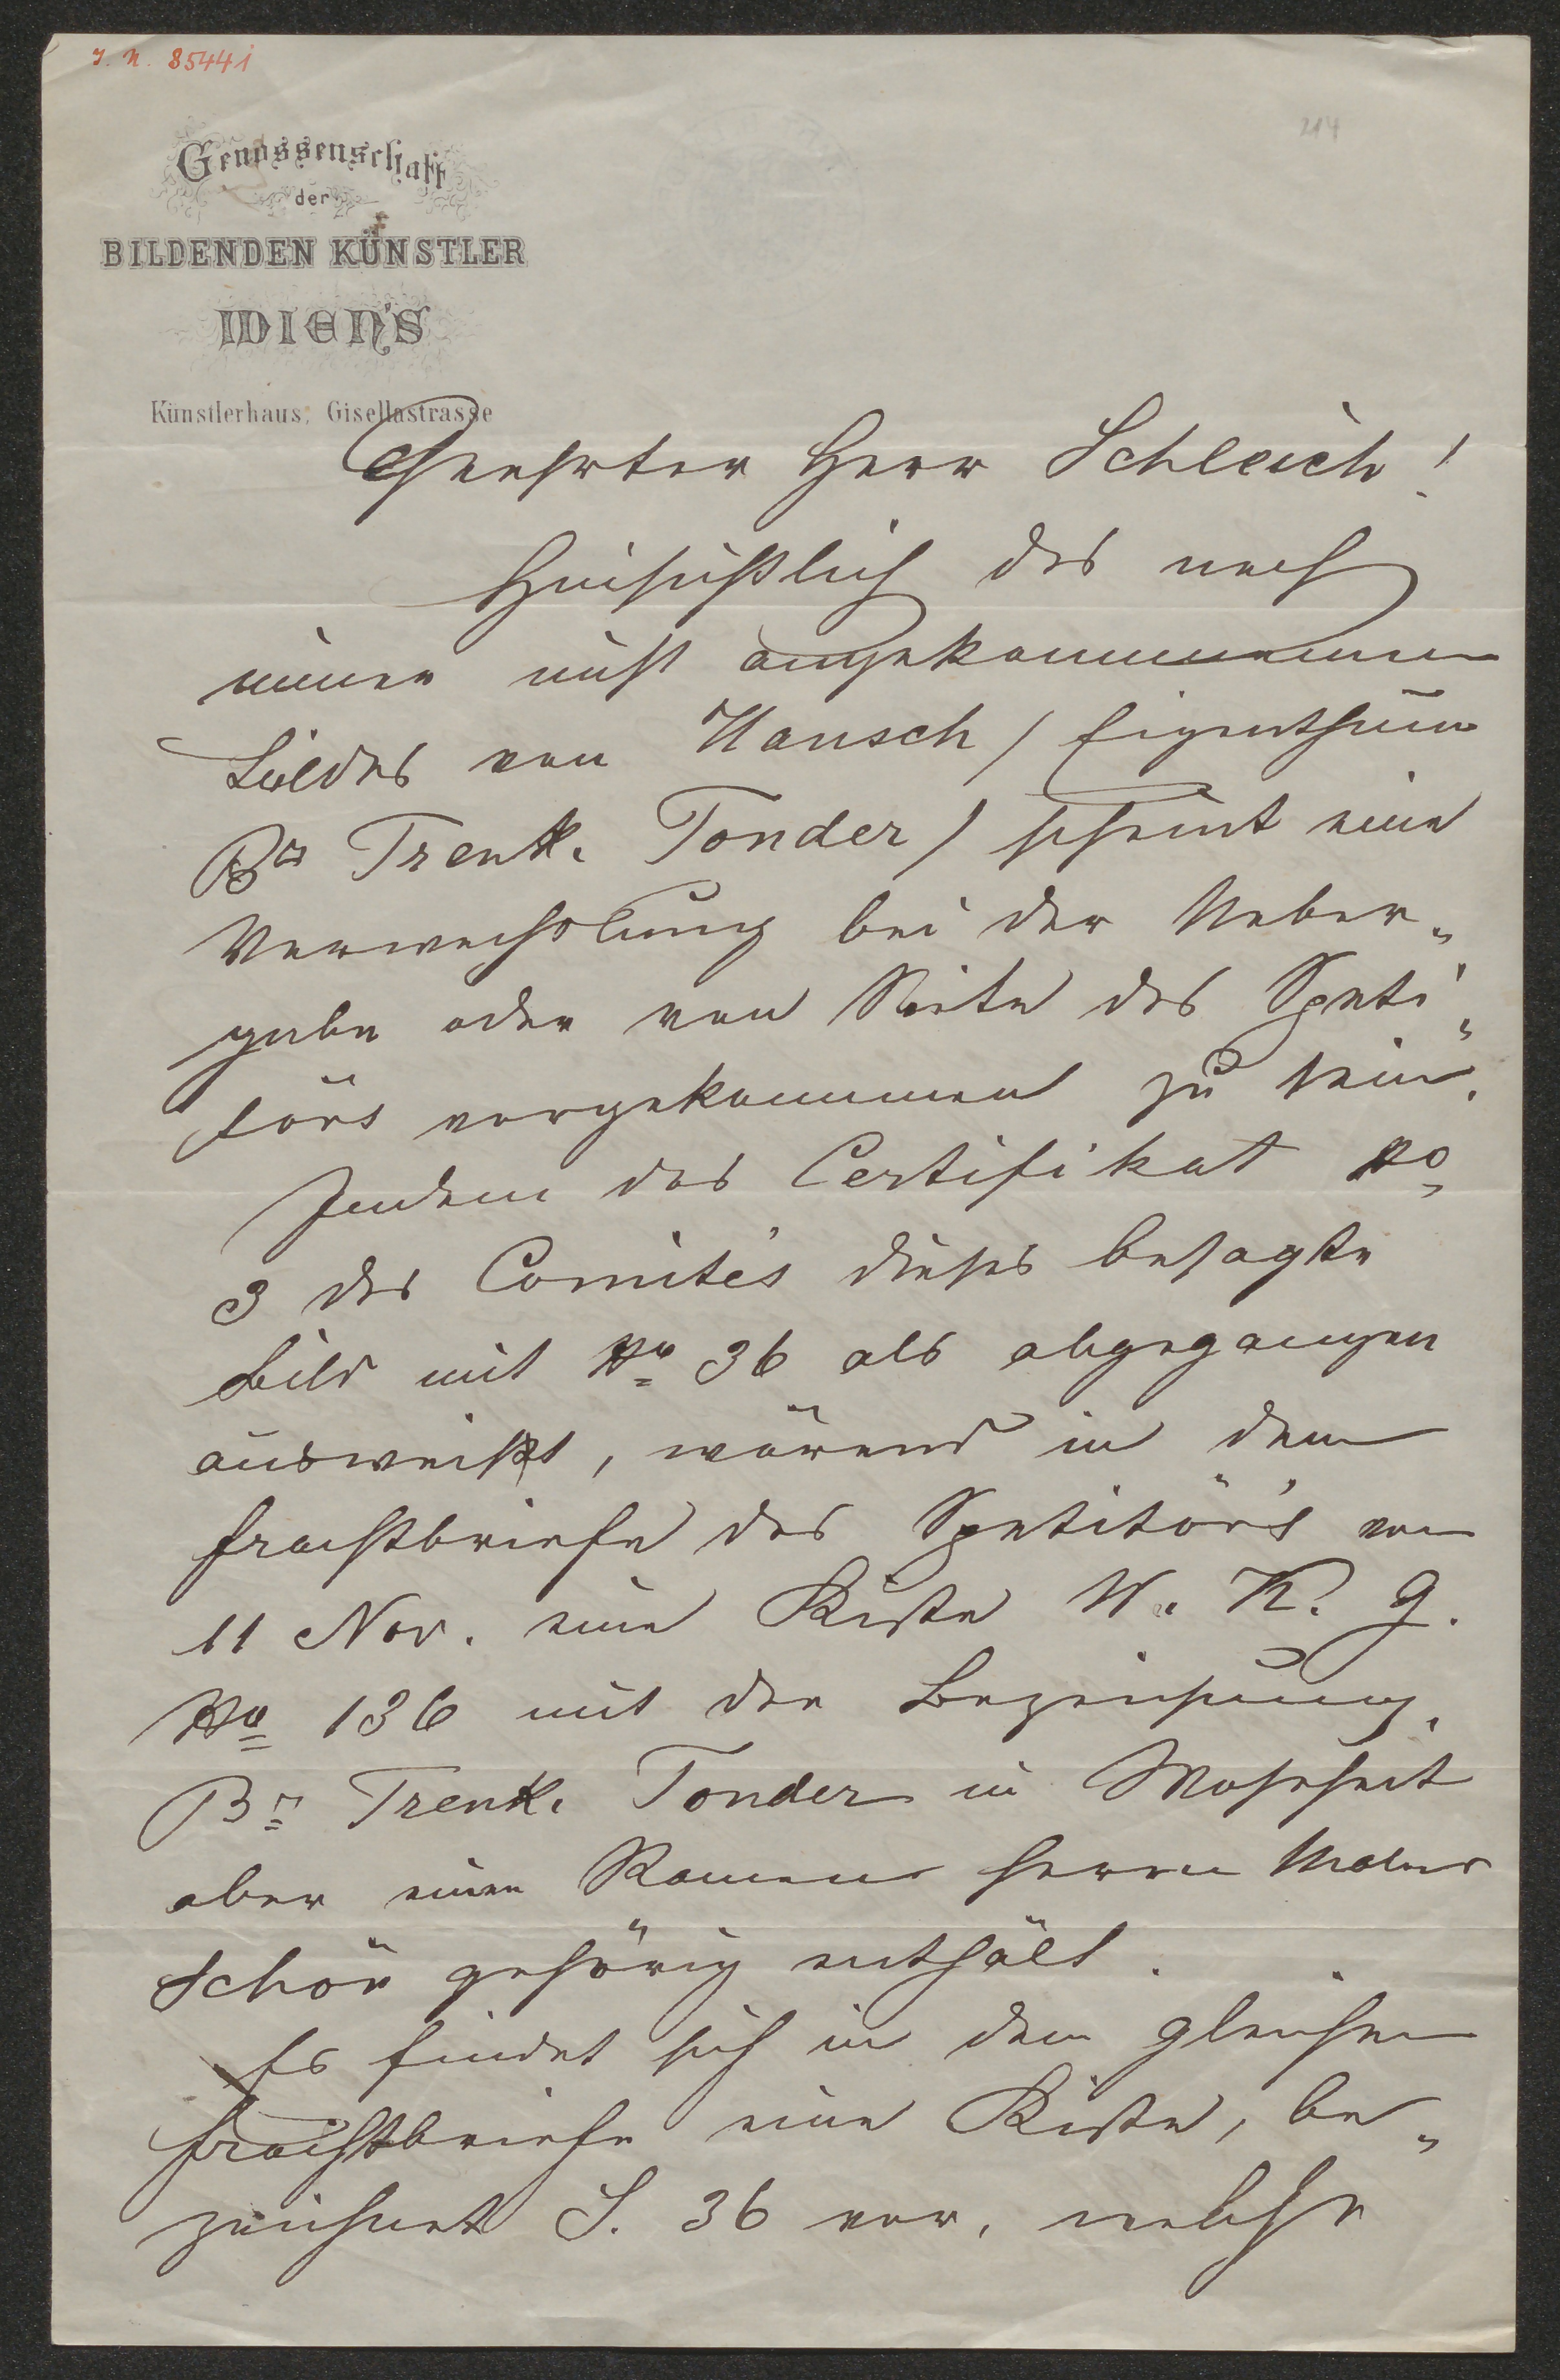 I. N. 85441
214
Genossenschaft
der
BILDENDEN KÜNSTLER
WIEN'S
Künstlerhaus, Gisellastrasse
Geehrter Herr Schleich!
Hinsichtlich des noch
immer nicht angekommenen
Bildes von Hansch / Eigenthum
Br Trenk. Tonder / scheint eine
Verwechslung bei der Ueber„
gabe oder von Seite des Speti„
törs vorgekommen zu sein.
Indem das Certifikat No
3 des Comité's dieses besagte
Bild mit No 36 als abgegangen
ausweißt, wärend in dem
Frachtbriefe des Spetitör's vom
11 Nov. eine Kiste W. K. G.
No 136 mit der Bezeichnung,
Br Trenk. Tonder in Wahrheit
aber einen Ramen Herrn Maler
Schön gehörig enthält.
Es findet sich in dem gleichen
Frachtbriefe eine Kiste, be„
zeichnet S. 36 vor, welche